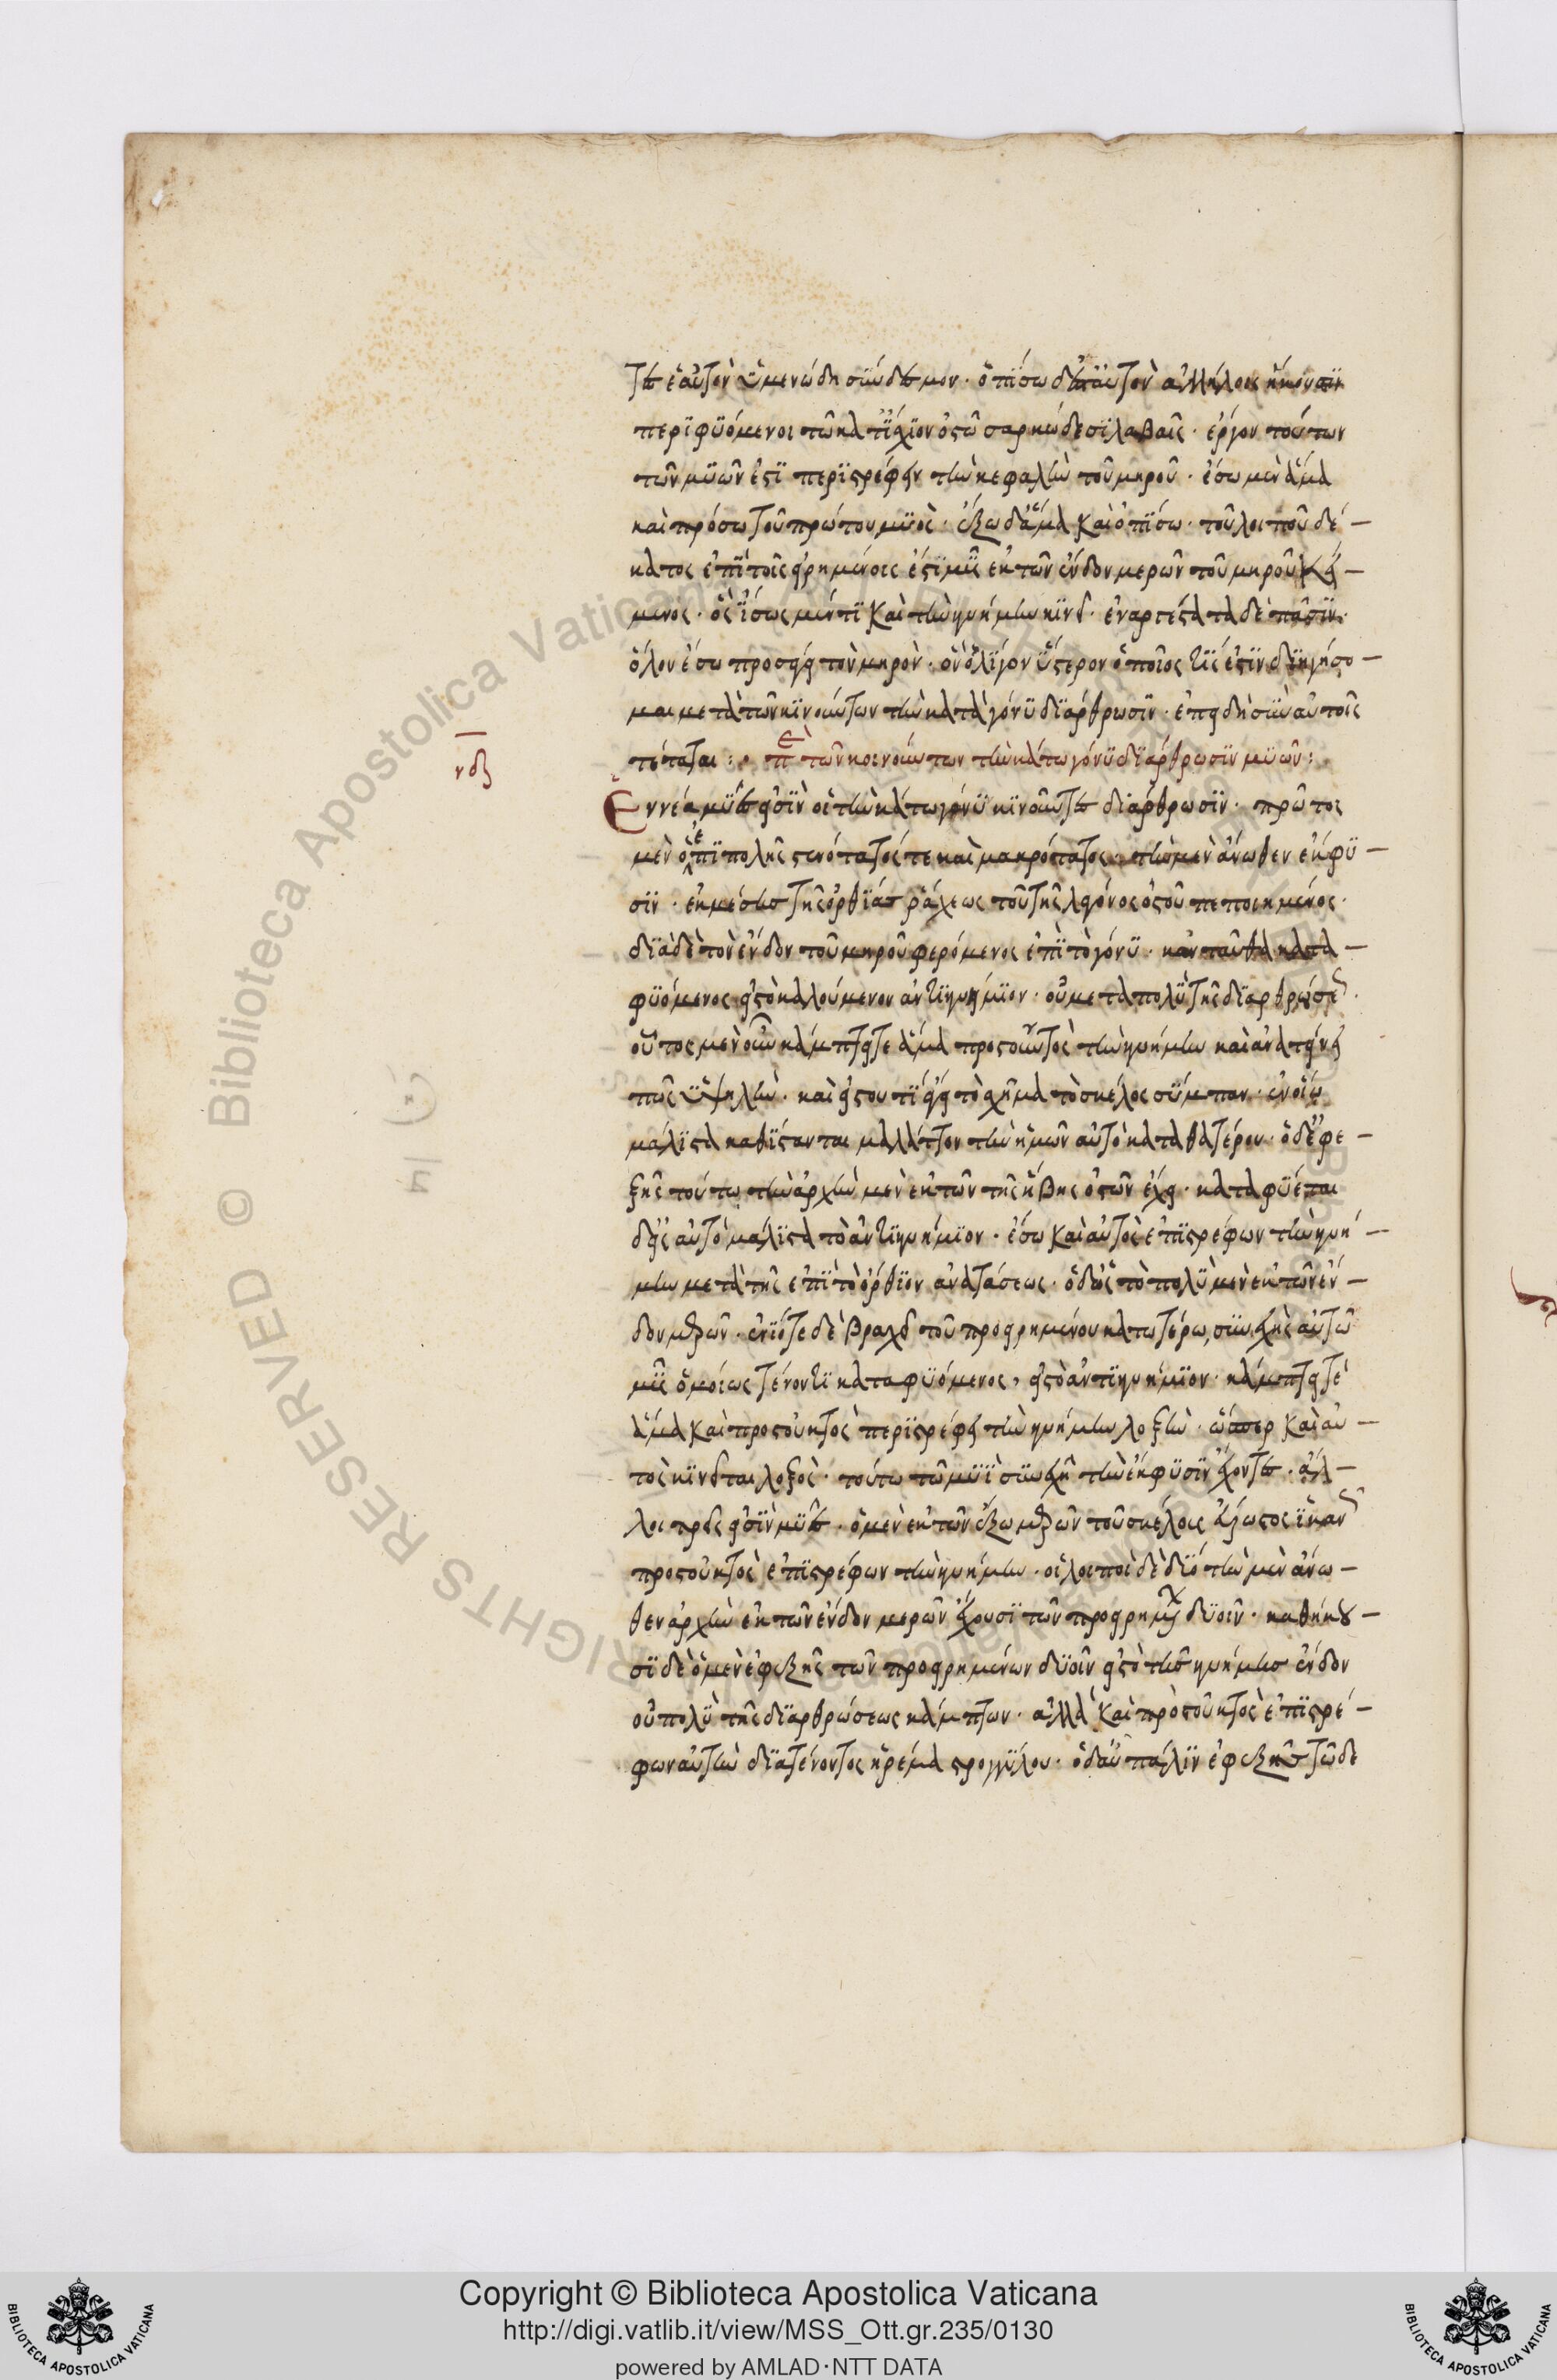 τες ἑαυτὸν ὑμενώδη σύνδεσμον. ὀπίσω δ' ἐπ' αὐτὸν ἀλλήλοις ἥκουσιν
περιφυόμενοι τῶ κατ' ἰσχίον ὀστῶ σαρκώδεσι λαβαῖς. ἔργον τούτων
τῶν μυῶν ἐστὶ περιστρέφειν τὴν κεφαλὴν τοῦ μηροῦ. ἔσω μὲν ἅμα
καὶ πρόσω τοῦ πρώτου μυὸς. ἔξω δ' ἅμα καὶ ὀπίσω. τοῦ λοιποῦ δέ-
κατος ἐπὶ τοῖς εἰρημένοις ἐστὶ μῦς ἐκ τῶν ἔνδον μερῶν τοῦ μηροῦ κεί-
μενος. ὃς ἴσως μέν τι καὶ τὴν κνήμην κινεῖ. ἐναργέστατα δὲ πᾶσιν.
ὅλον ἔσω προσάγει τὸν μηρὸν. ὃν ὀλίγον ὕστερον ὁποῖος τίς ἐστὶν διηγήσο-
μαι μετὰ τῶν κινούντων τὴν κατὰ γόνυ διάρθρωσιν. ἐπειδὴ σὺν αὐτοῖς
τέτακται:· περὶ τῶν κοινούντων τὴν κάτω γόνυ διάρθρωσιν μυῶν:
νδ
Ἐννέα μύες εἰσὶν οἱ τὴν κάτω γόνυ κινοῦντες διάρθρωσιν. πρῶτος
μὲν ὁ ἐπιπολῆς στενότατός τε καὶ μακρότατος. τὴν μὲν ἄνωθεν ἔκφυ-
σιν. ἐκ μέσης τῆς ὀρθίας ῥάχεως τοῦ τῆς λαγόνος ὀστοῦ πεποιημένος.
διὰ δὲ τὸν ἔνδον τοῦ μηροῦ φερόμενος ἐπὶ τὸ γόνυ. κἀνταῦθα κατα-
φυόμενος εἰς τὸ καλούμενον ἀντικνήμιον. οὐ μετὰ πολὺ τῆς διαρθρώσεως.
οὗτος μὲν οὖν κάμπτει τε ἅμα πρὸς τοὐντὸς τὴν κνήμην καὶ ἀνατείνει
πως ὑψηλὴν. καὶ εἰς τουτὶ ἄγει τὸ σχῆμα τὸ σκέλος σύμπαν. ἐν οἵῳ
μάλιστα καθίστανται μαλάττον τὴν ἡμῶν αὐτὸ κατὰ θάτερον. ὁ δ' ἐφε-
ξῆς τούτω τὴν ἀρχὴν μὲν ἐκ τῶν τῆς ἥβης ὀστῶν ἔχει. καταφύεται
δ' εἰς αὐτὸ μάλιστα τὸ ἀντικνήμιον. ἔσω καὶ αὐτὸς ἐπιστρέφων τὴν κνή-
μην μετὰ τῆς ἐπὶ τὸ ὄρθιον ἀνατάσεως. ὁδὸς τὸ πολὺ μὲν ἐκ τῶν ἔν-
δον μερῶν. ἐνίοτε δὲ βραχεῖ τοῦ προειρημένου κατωτέρω, συνεχὴς αὐτῶ
μῦς ὁμοίως τένοντι καταφυόμενος, εἰς τὸ ἀντικνήμιον. κάμπτει τὲ
ἅμα καὶ πρὸς τοὐκτὸς περιστρέφει τὴν κνήμην λοξὴν. ὥσπερ καὶ αὐ-
τὸς κινεῖται λοξὸς. τούτω τῶ μυῒ συνεχῆ τὴν ἔκφυσιν ἔχοντες. ἄλ-
λοι τρεῖς εἰσὶν μύες. ὁ μὲν ἐκ τῶν ἔξω μερῶν τοῦ σκέλους ἄγωστος ἱκανῶς
πρὸς τοὐκτὸς ἐπιστρέφων τὴν κνήμην. οἱ λοιποὶ δὲ δύο τὴν μὲν ἄνω-
θεν ἀρχὴν ἐκ τῶν ἔνδον μερῶν ἔχουσι τῶν προειρημένων δυοῖν. καθήκου-
σι δὲ ὁ μὲν ἐφεξῆς τῶν προειρημένων δυοῖν εἰς τὸ τῆς κνήμης ἔνδον
οὐ πολὺ τῆς διαρθρώσεως κάμπτων. ἀλλὰ καὶ πρὸς τοὐκτὸς ἐπιστρέ-
φων αὐτὴν διὰ τένοντος ἠρέμα στρογγύλου. ὁ δ' αὖ πάλιν ἐφεξῆς τῶδε
Copyright © Biblioteca Apostolica Vaticana
http://digi.vatlib.it/view/MSS_Ott.gr.235/0130
powered by AMLAD·NTT DATA